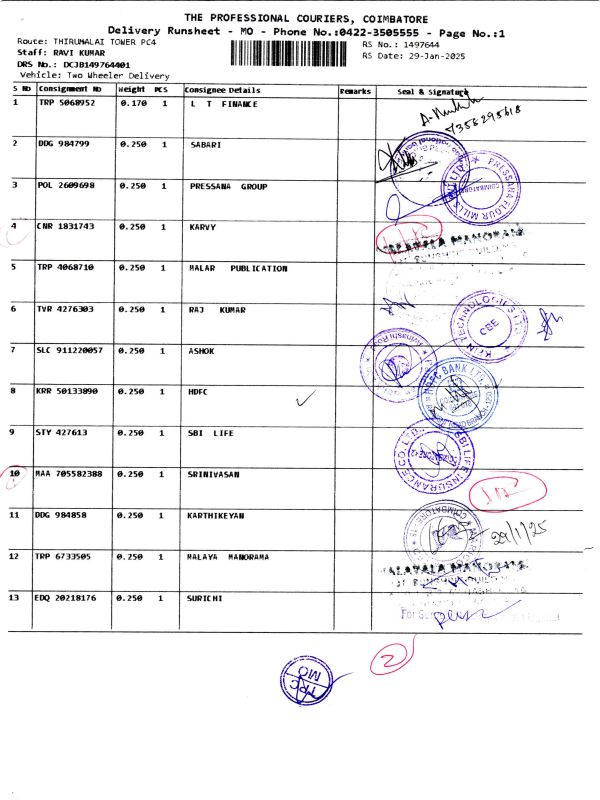 THE PROFESSIONAL COURIERS, COIMBATORE
Delivery Runsheet - MO - Phone No.:0422-3505555 - Page No.:1
Route: THIRUMALAI TOWER PC4
RS No.: 1497644
Staff: RAVI KUMAR
RS Date: 29-Jan-2025
DRS No.: DCJB149764401
Vehicle: Two Wheeler Delivery
S No Consignment No Weight PCS Consignee Details Remarks Seal & Signature
1 TRP 5068952 0.170 1 L T FINANCE
7356295618
2 DDG 984799 0.250 1 SABARI
3 POL 2609698 0.250 1 PRESSANA GROUP
PRESSANA FLOUR MILLS
COIMBATORE
4 CNR 1831743 0.250 1 KARVY
5 TRP 4068710 0.250 1 MALAR PUBLICATION
6 TVR 4276303 0.250 1 RAJ KUMAR
KFIN TECHNOLOGIES LTD
CBE
7 SLC 911220057 0.250 1 ASHOK
8 KRR 50133890 0.250 1 HDFC
HDFC BANK LTD.
9 STY 427613 0.250 1 SBI LIFE
SBI LIFE INSURANCE CO. LTD.
10 MAA 705582388 0.250 1 SRINIVASAN
11 DDG 984858 0.250 1 KARTHIKEYAN
COIMBATORE
29/1/25
12 TRP 6733505 0.250 1 MALAYA MANORAMA
13 EDQ 20218176 0.250 1 SURICHI
For
2
TRC
MO